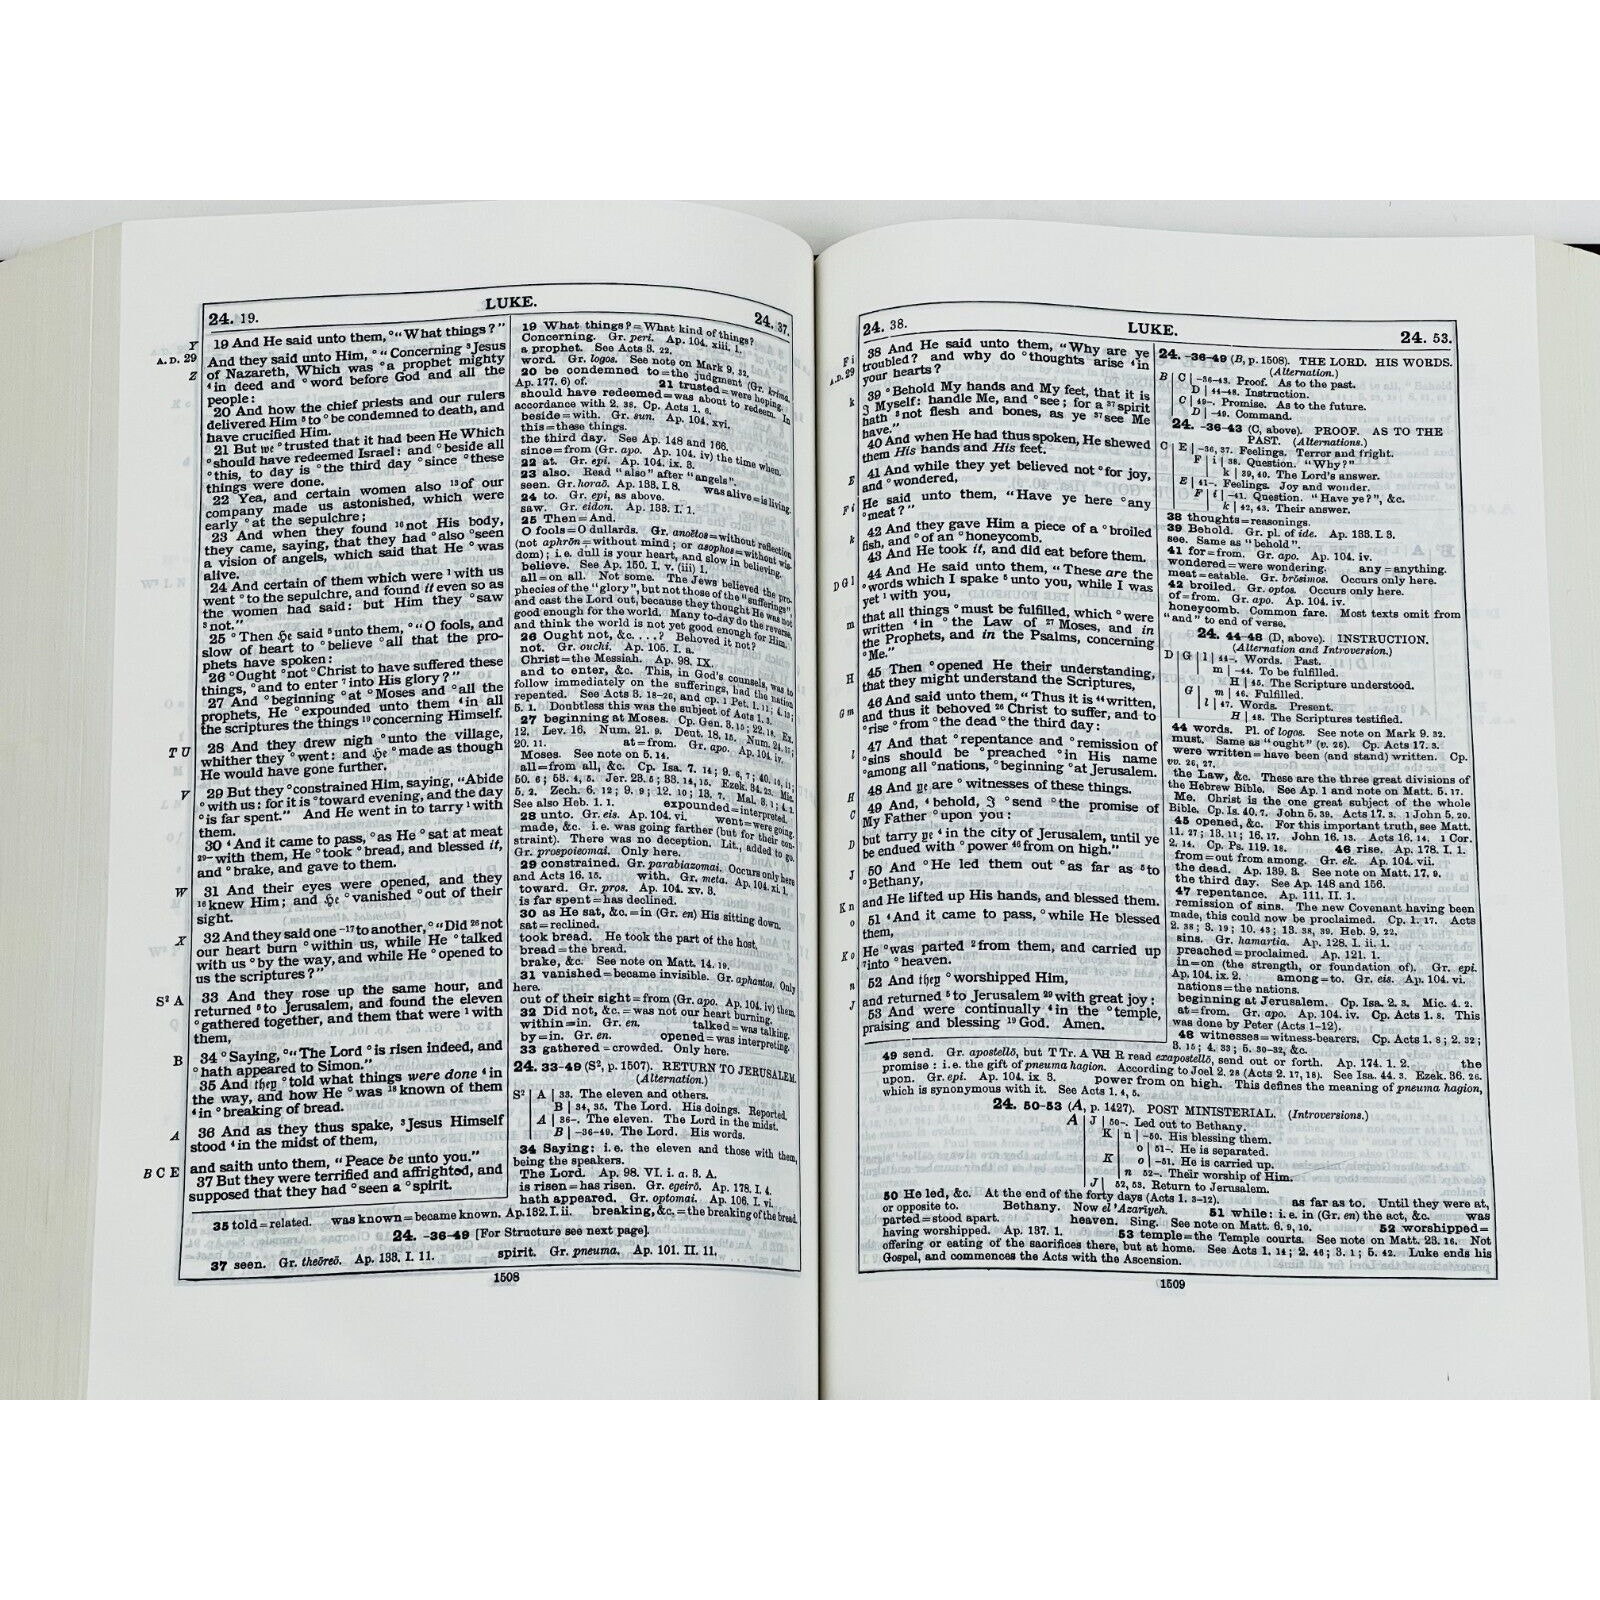 LUKE.
24. 19.
24. 37.
Y
A.D. 29
Z
19 And He said unto them, °"What things?"
And they said unto Him, °"Concerning ³Jesus
of Nazareth, Which was °a prophet mighty
⁴in deed and °word before God and all the
people:
20 And how the chief priests and our rulers
delivered Him ⁵to °be condemned to death, and
have crucified Him.
21 But we °trusted that it had been He Which
°should have redeemed Israel: and °beside all
°this, to day is °the third day °since °these
things were done.
22 Yea, and certain women also ¹³of our
company made us astonished, which were
early °at the sepulchre;
23 And when they found ¹⁶not His body,
they came, saying, that they had °also °seen
a vision of angels, which said that He °was
alive.
24 And certain of them which were ¹with us
went °to the sepulchre, and found it even so as
the women had said: but Him they °saw
³not."
25 °Then He said ⁵unto them, °"O fools, and
slow of heart to °believe °all that the pro-
phets have spoken:
26 °Ought °not °Christ to have suffered these
things, °and to enter ⁷into His glory?"
27 And °beginning °at °Moses and °all the
prophets, He °expounded unto them ⁴in all
the scriptures the things ¹⁹concerning Himself.
T U
28 And they drew nigh °unto the village,
whither they °went: and He °made as though
He would have gone further.
V
29 But they °constrained Him, saying, "Abide
°with us: for it is °toward evening, and the day
°is far spent." And He went in to tarry ¹with
them.
30 ⁴And it came to pass, °as He °sat at meat
²⁹⁻with them, He °took °bread, and blessed it,
and °brake, and gave to them.
W
31 And their eyes were opened, and they
¹⁶knew Him; and He °vanished °out of their
sight.
X
32 And they said one ⁻¹⁷to another, °"Did ²⁶not
our heart burn °within us, while He °talked
with us °by the way, and while He °opened to
us the scriptures?"
S² A
33 And they rose up the same hour, and
returned ⁵to Jerusalem, and found the eleven
°gathered together, and them that were ¹with
them,
B
34 °Saying, °"The Lord °is risen indeed, and
°hath appeared to Simon."
35 And they °told what things were done ⁴in
the way, and how He °was ¹⁸known of them
⁴in °breaking of bread.
A
36 And as they thus spake, ³Jesus Himself
stood ⁴in the midst of them,
B C E
and saith unto them, "Peace be unto you."
37 But they were terrified and affrighted, and
supposed that they had °seen a °spirit.
19 What things?=What kind of things?
Concerning. Gr. peri. Ap. 104. xiii. 1.
a prophet. See Acts 3. 22.
word. Gr. logos. See note on Mark 9. 32.
20 be condemned to=the judgment (Gr. krima.
Ap. 177. 6) of. 21 trusted=were hoping.
should have redeemed=was about to redeem. In
accordance with 2. 38. Cp. Acts 1. 6.
beside=with. Gr. sun. Ap. 104. xvi.
this=these things.
the third day. See Ap. 148 and 166.
since=from (Gr. apo. Ap. 104. iv) the time when.
22 at. Gr. epi. Ap. 104. ix. 3.
23 also. Read "also" after "angels".
seen. Gr. horaō. Ap. 133. I. 8. was alive=is living.
24 to. Gr. epi, as above.
saw. Gr. eidon. Ap. 133. I. 1.
25 Then=And.
O fools=O dullards. Gr. anoētos=without reflection
not aphrōn=without mind; or asophos=without wis-
dom); i.e. dull is your heart, and slow in believing.
believe. See Ap. 150. I. v. (iii) 1.
all=on all. Not some. The Jews believed the pro-
phecies of the "glory", but not those of the "sufferings",
and cast the Lord out, because they thought He was not
good enough for the world. Many to-day do the reverse,
and think the world is not yet good enough for Him.
26 Ought not, &c. ....? Behoved it not?
not. Gr. ouchi. Ap. 105. I. a.
Christ=the Messiah. Ap. 98. IX.
and to enter, &c. This, in God's counsels, was to
follow immediately on the sufferings, had the nation
repented. See Acts 3. 18-26, and cp. 1 Pet. 1. 11; 4. 13;
5. 1. Doubtless this was the subject of Acts 1. 3.
27 beginning at Moses. Cp. Gen. 3. 15; 22. 18. Ex.
12. Lev. 16. Num. 21. 9. Deut. 18. 15. Num. 24. 17;
20. 11. at=from. Gr. apo. Ap. 104. iv.
Moses. See note on 5. 14.
all=from all, &c. Cp. Isa. 7. 14; 9. 6, 7; 40. 10, 11;
50. 6; 53. 4, 5. Jer. 23. 5; 33. 14, 15. Ezek. 34. 23. Mic.
5. 2. Zech. 6. 12; 9. 9; 12. 10; 13. 7. Mal. 3. 1; 4. 2.
See also Heb. 1. 1. expounded=interpreted.
28 unto. Gr. eis. Ap. 104. vi. went=were going.
made, &c. i.e. was going farther (but for their con-
straint). There was no deception. Lit., added to go.
Gr. prospoieomai. Only here.
29 constrained. Gr. parabiazomai. Occurs only here
and Acts 16. 15. with. Gr. meta. Ap. 104. xi. 1.
toward. Gr. pros. Ap. 104. xv. 3.
is far spent=has declined.
30 as He sat, &c.=in (Gr. en) His sitting down.
sat=reclined.
took bread. He took the part of the host.
bread=the bread.
brake, &c. See note on Matt. 14. 19.
31 vanished=became invisible. Gr. aphantos. Only
here.
out of their sight=from (Gr. apo. Ap. 104. iv) them.
32 Did not, &c.=was not our heart burning.
within=in. Gr. en. talked=was talking.
by=in. Gr. en. opened=was interpreting.
33 gathered=crowded. Only here.
24. 33-49 (S², p. 1507). RETURN TO JERUSALEM.
(Alternation.)
S² | A | 33. The eleven and others.
B | 34, 35. The Lord. His doings. Reported.
A | 36-. The eleven. The Lord in the midst.
B | -36-49. The Lord. His words.
34 Saying: i.e. the eleven and those with them,
being the speakers.
The Lord. Ap. 98. VI. i. a. 3. A.
is risen=has risen. Gr. egeirō. Ap. 178. I. 4.
hath appeared. Gr. optomai. Ap. 106. I. vi.
35 told=related. was known=became known. Ap. 132. I. ii. breaking, &c.=the breaking of the bread.
24. -36-49 [For Structure see next page].
37 seen. Gr. theōreō. Ap. 133. I. 11. spirit. Gr. pneuma. Ap. 101. II. 11.
1508
24. 38.
LUKE.
24. 53.
F i
A.D. 29
38 And He said unto them, "Why are ye
troubled? and why do °thoughts arise ⁴in
your hearts?
k
39 °Behold My hands and My feet, that it is
I Myself: handle Me, and °see; for a ³⁷spirit
hath ³not flesh and bones, as ye ³⁷see Me
have."
40 And when He had thus spoken, He shewed
them His hands and His feet.
E
41 And while they yet believed not °for joy,
and °wondered,
F i
He said unto them, "Have ye here °any
°meat?"
k
42 And they gave Him a piece of a °broiled
fish, and °of an °honeycomb.
43 And He took it, and did eat before them.
D G l
44 And He said unto them, "These are the
°words which I spake ⁵unto you, while I was
yet ¹with you,
m
that all things °must be fulfilled, which °were
written ⁴in °the Law of ²⁷Moses, and in
the Prophets, and in the Psalms, concerning
°Me."
H
45 Then °opened He their understanding,
that they might understand the Scriptures,
G m
46 And said unto them, "Thus it is °written,
and thus it behoved ²⁶Christ to suffer, and to
°rise °from °the dead °the third day:
l
47 And that °repentance and °remission of
°sins should be °preached °in His name
°among all °nations, °beginning °at Jerusalem.
H
48 And ye are °witnesses of these things.
C
49 And, ⁴behold, I °send °the promise of
My Father °upon you:
D
but tarry ye ⁴in the city of Jerusalem, until ye
be endued with °power ⁴⁶from on high."
J
50 And °He led them out °as far as ⁵to
°Bethany,
K n
and He lifted up His hands, and blessed them.
o
51 ⁴And it came to pass, °while He blessed
them,
K o
He °was parted ²from them, and carried up
⁷into °heaven.
n
52 And they °worshipped Him,
J
and returned ⁵to Jerusalem ²⁹with great joy:
53 And were continually ⁴in the °temple,
praising and blessing ¹⁹God. Amen.
24. -36-49 (B, p. 1508). THE LORD. HIS WORDS.
(Alternation.)
B | C | -36-43. Proof. As to the past.
D | 44-48. Instruction.
C | 49-. Promise. As to the future.
D | -49. Command.
24. -36-43 (C, above). PROOF. AS TO THE
PAST. (Alternations.)
C | E | -36, 37. Feelings. Terror and fright.
F | i | 38. Question. "Why?"
k | 39, 40. The Lord's answer.
E | 41-. Feelings. Joy and wonder.
F | i | -41. Question. "Have ye?", &c.
k | 42, 43. Their answer.
38 thoughts=reasonings.
39 Behold. Gr. pl. of ide. Ap. 133. I. 3.
see. Same as "behold".
41 for=from. Gr. apo. Ap. 104. iv.
wondered=were wondering. any=anything.
meat=eatable. Gr. brōsimos. Occurs only here.
42 broiled. Gr. optos. Occurs only here.
of=from. Gr. apo. Ap. 104. iv.
honeycomb. Common fare. Most texts omit from
"and" to end of verse.
24. 44-48 (D, above). INSTRUCTION.
(Alternation and Introversion.)
D | G | l | 44-. Words. Past.
m | -44. To be fulfilled.
H | 45. The Scripture understood.
G | m | 46. Fulfilled.
l | 47. Words. Present.
H | 48. The Scriptures testified.
44 words. Pl. of logos. See note on Mark 9. 32.
must. Same as "ought" (v. 26). Cp. Acts 17. 3.
were written=have been (and stand) written. Cp.
vv. 26, 27.
the Law, &c. These are the three great divisions of
the Hebrew Bible. See Ap. 1 and note on Matt. 5. 17.
Me. Christ is the one great subject of the whole
Bible. Cp. Is. 40. 7. John 5. 39. Acts 17. 3. 1 John 5. 20.
45 opened, &c. For this important truth, see Matt.
11. 27; 13. 11; 16. 17. John 16. 13. Acts 16. 14. 1 Cor.
2. 14. Cp. Ps. 119. 18. 46 rise. Ap. 178. I. 1.
from=out from among. Gr. ek. Ap. 104. vii.
the dead. Ap. 139. 3. See note on Matt. 17. 9.
the third day. See Ap. 148 and 156.
47 repentance. Ap. 111. II. 1.
remission of sins. The new Covenant having been
made, this could now be proclaimed. Cp. 1. 17. Acts
2. 38; 3. 19; 10. 43; 13. 38, 39. Heb. 9. 22.
sins. Gr. hamartia. Ap. 128. I. ii. 1.
preached=proclaimed. Ap. 121. 1.
in=on (the strength, or foundation of). Gr. epi.
Ap. 104. ix. 2. among=to. Gr. eis. Ap. 104. vi.
nations=the nations.
beginning at Jerusalem. Cp. Isa. 2. 3. Mic. 4. 2.
at=from. Gr. apo. Ap. 104. iv. Cp. Acts 1. 8. This
was done by Peter (Acts 1-12).
48 witnesses=witness-bearers. Cp. Acts 1. 8; 2. 32;
3. 15; 4. 33; 5. 30-32, &c.
49 send. Gr. apostellō, but T Tr. A WH R read exapostellō, send out or forth. Ap. 174. 1. 2. the
promise: i.e. the gift of pneuma hagion. According to Joel 2. 28 (Acts 2. 17, 18). See Isa. 44. 3. Ezek. 36. 26.
upon. Gr. epi. Ap. 104. ix 3. power from on high. This defines the meaning of pneuma hagion,
which is synonymous with it. See Acts 1. 4, 5.
24. 50-53 (A, p. 1427). POST MINISTERIAL. (Introversions.)
A | J | 50-. Led out to Bethany.
K | n | -50. His blessing them.
o | 51-. He is separated.
K | o | -51. He is carried up.
n | 52-. Their worship of Him.
J | 52, 53. Return to Jerusalem.
50 He led, &c. At the end of the forty days (Acts 1. 3-12). as far as to. Until they were at,
or opposite to. Bethany. Now el 'Azarīyeh. 51 while: i.e. in (Gr. en) the act, &c. was
parted=stood apart. heaven. Sing. See note on Matt. 6. 9, 10. 52 worshipped=
having worshipped. Ap. 137. 1. 53 temple=the Temple courts. See note on Matt. 23. 16. Not
offering or eating of the sacrifices there, but at home. See Acts 1. 14; 2. 46; 3. 1; 5. 42. Luke ends his
Gospel, and commences the Acts with the Ascension.
1509